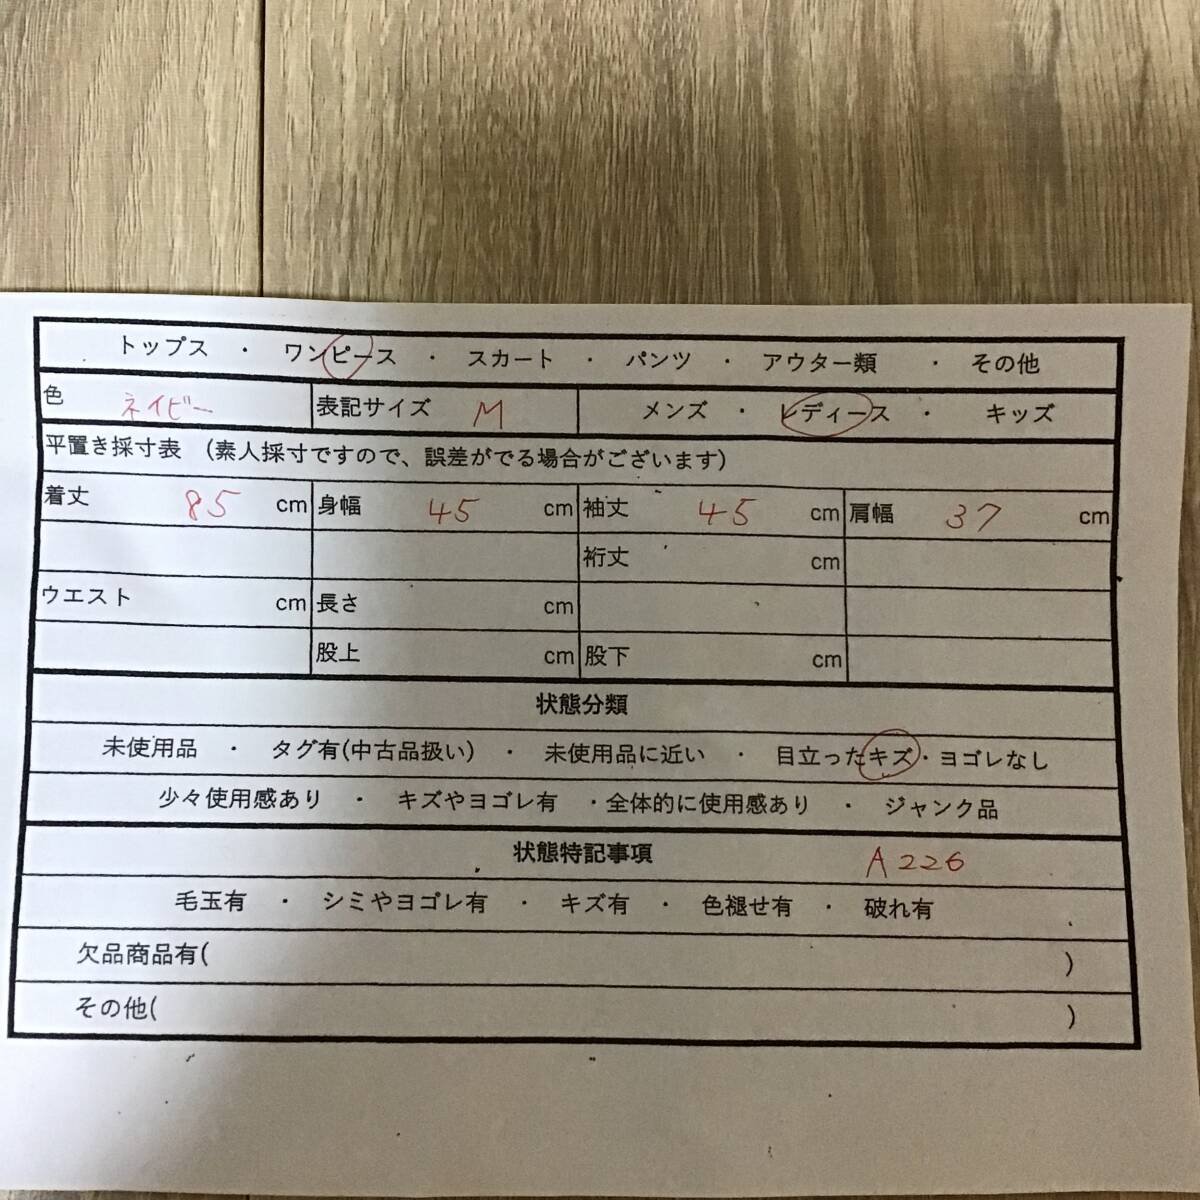 トップス ・ ワンピース ・ スカート ・ パンツ ・ アウター類 ・ その他
色 ネイビー 表記サイズ M メンズ ・ レディース ・ キッズ
平置き採寸表 (素人採寸ですので、誤差がでる場合がございます)
着丈 85 cm 身幅 45 cm 袖丈 45 cm 肩幅 37 cm
裄丈 cm
ウエスト cm 長さ cm
股上 cm 股下 cm
状態分類
未使用品 ・ タグ有(中古品扱い) ・ 未使用品に近い ・ 目立ったキズ・ヨゴレなし
少々使用感あり ・ キズやヨゴレ有 ・全体的に使用感あり ・ ジャンク品
状態特記事項 A226
毛玉有 ・ シミやヨゴレ有 ・ キズ有 ・ 色褪せ有 ・ 破れ有
欠品商品有( )
その他( )